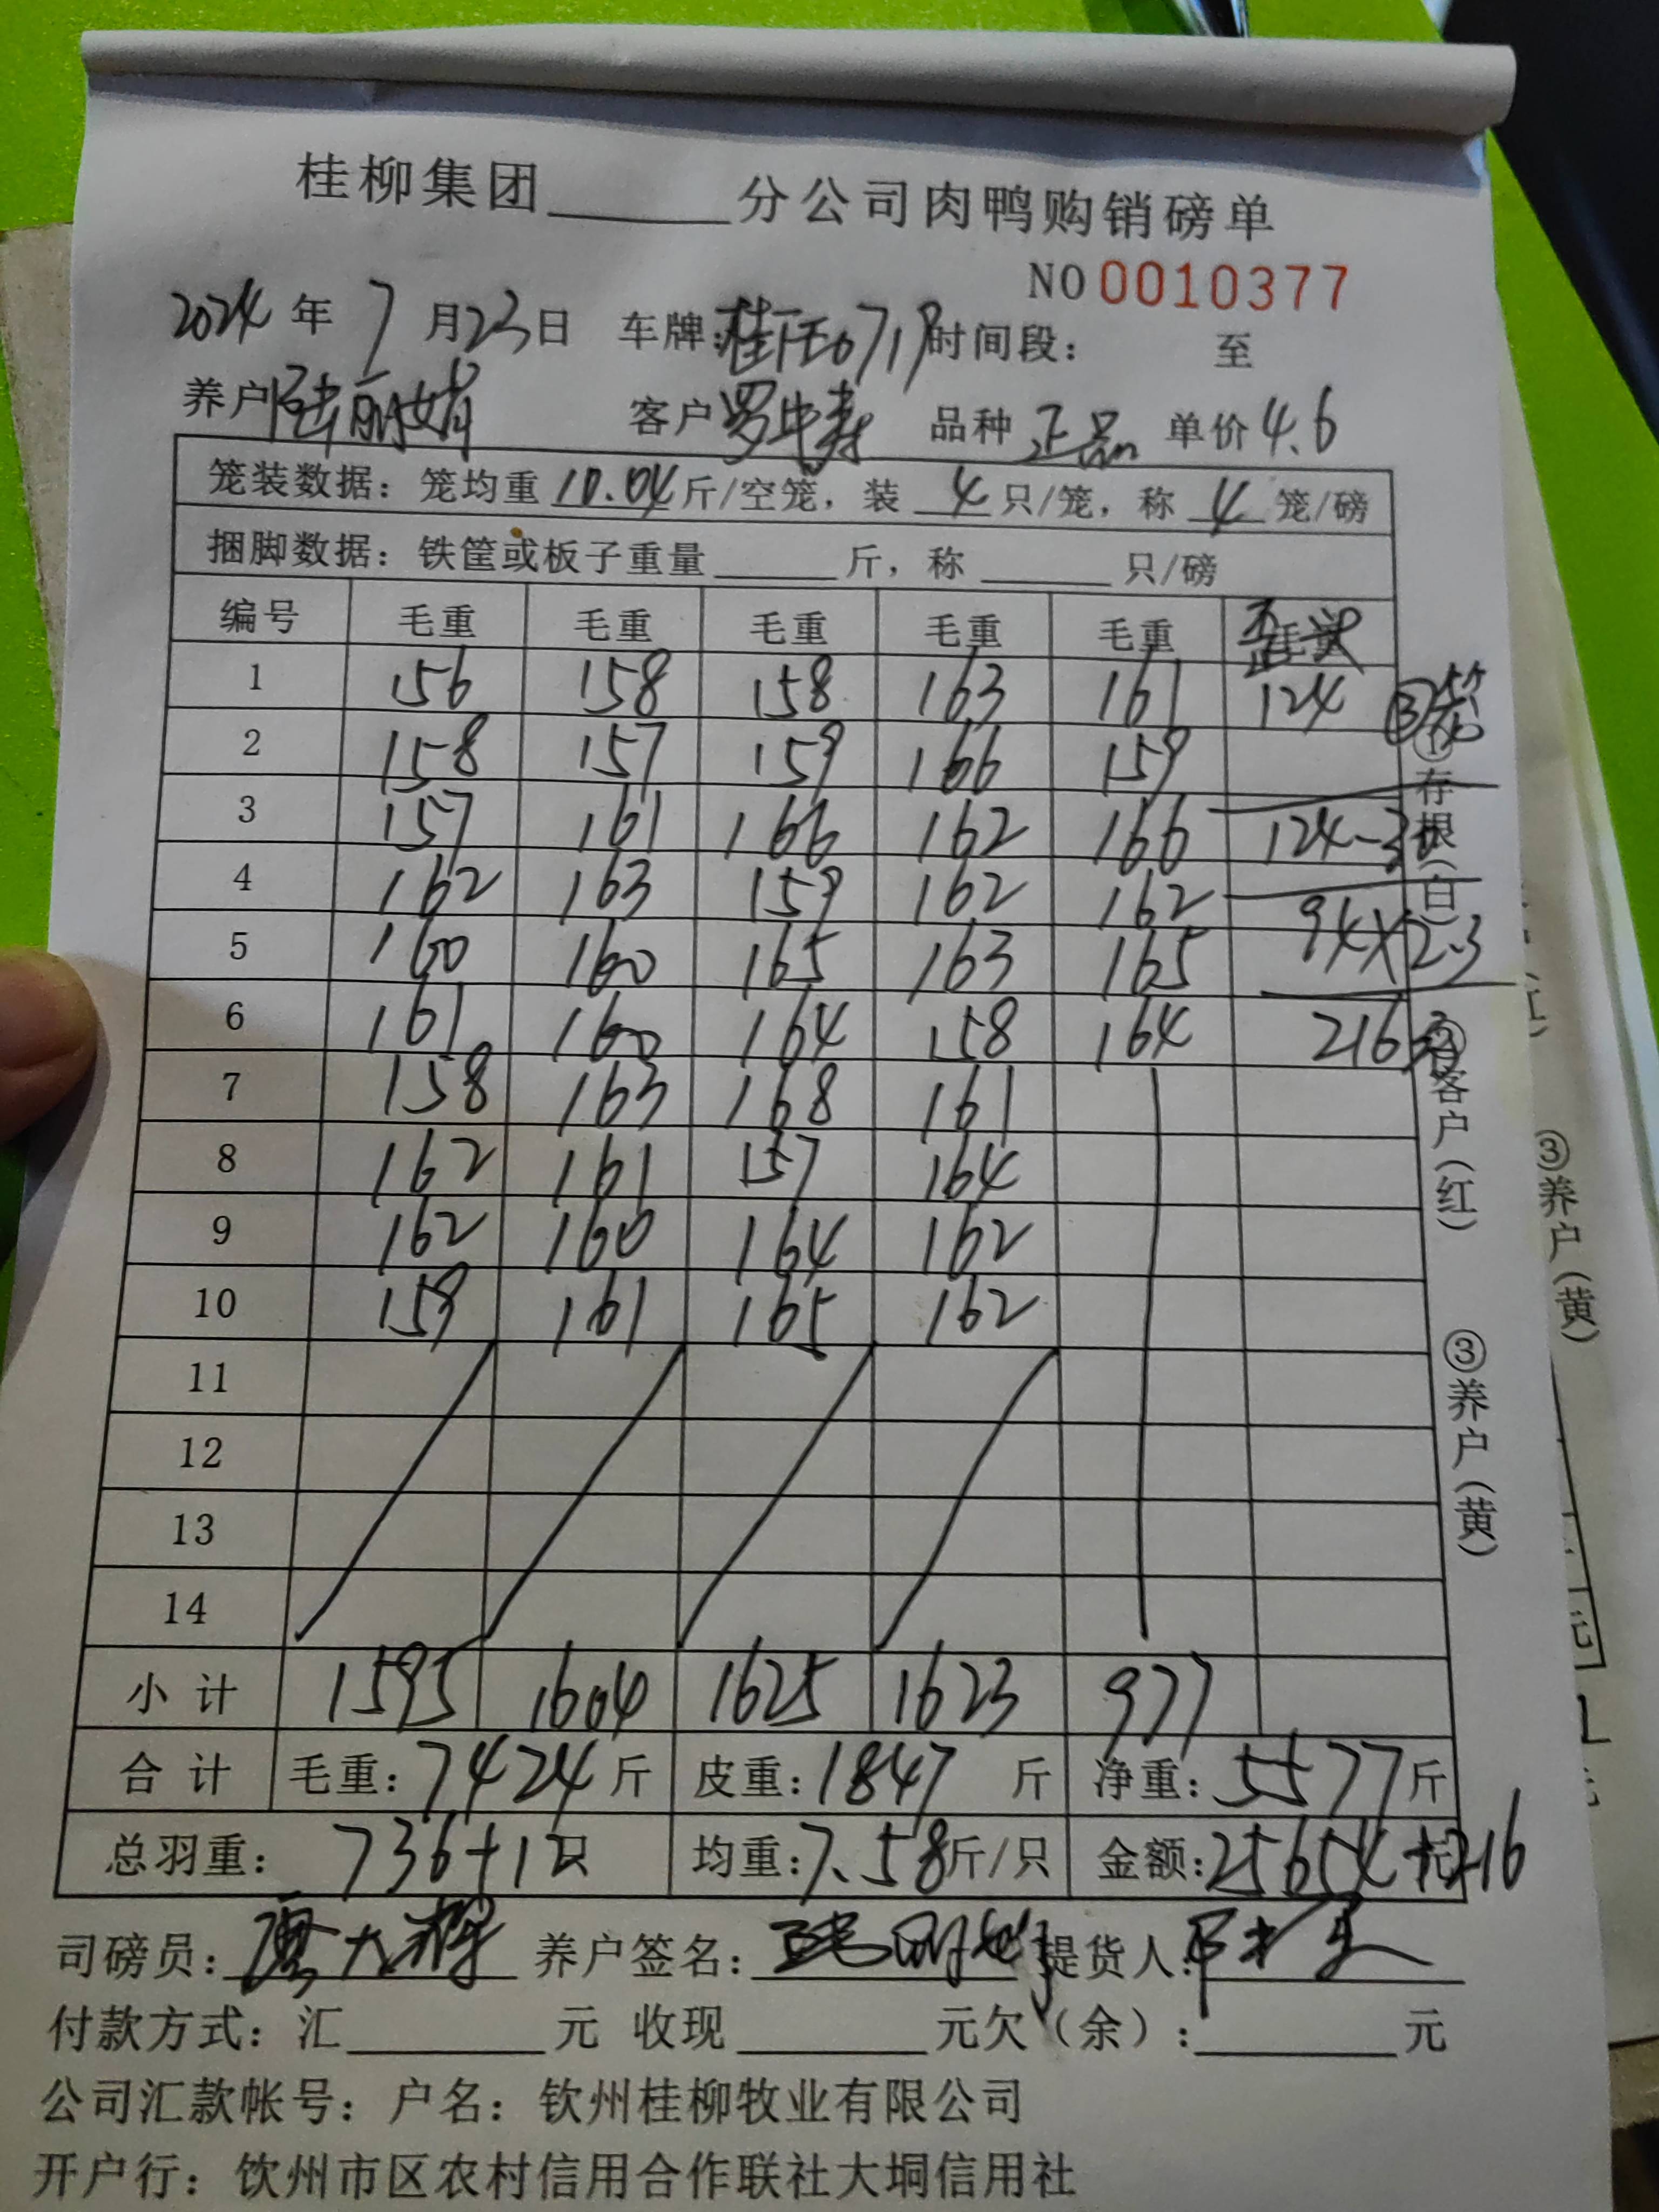 桂柳集团______分公司肉鸭购销磅单
NO 0010377
2024 年 7 月 23 日 车牌: 时间段: 至
养户 陆丽娟 客户 品种 正品 单价 4.6
笼装数据: 笼均重 10.04 斤/空笼, 装 4 只/笼, 称 4 笼/磅
捆脚数据: 铁筐或板子重量______斤, 称______只/磅
编号 毛重 毛重 毛重 毛重 毛重
1 156 158 158 163 161 124 ③笼
2 158 157 159 166 159
3 157 161 166 162 166 124-30
4 162 163 159 162 162
5 160 160 165 163 165 94×2.3
6 161 160 164 158 164 216元
7 158 163 168 161
8 162 161 157 164
9 162 160 164 162
10 159 161 165 162
11
12
13
14
小计 1595 1604 1625 1623 977
合计 毛重: 7424 斤 皮重: 1847 斤 净重: 5577 斤
总羽重: 736+12只 均重: 7.58 斤/只 金额: 25654+216 元
司磅员: 养户签名: 提货人:
付款方式: 汇______元 收现______元欠(余):______元
公司汇款帐号: 户名: 钦州桂柳牧业有限公司
开户行: 钦州市区农村信用合作联社大垌信用社
①存根(白)
②客户(红)
③养户(黄)
③养户(黄)
元